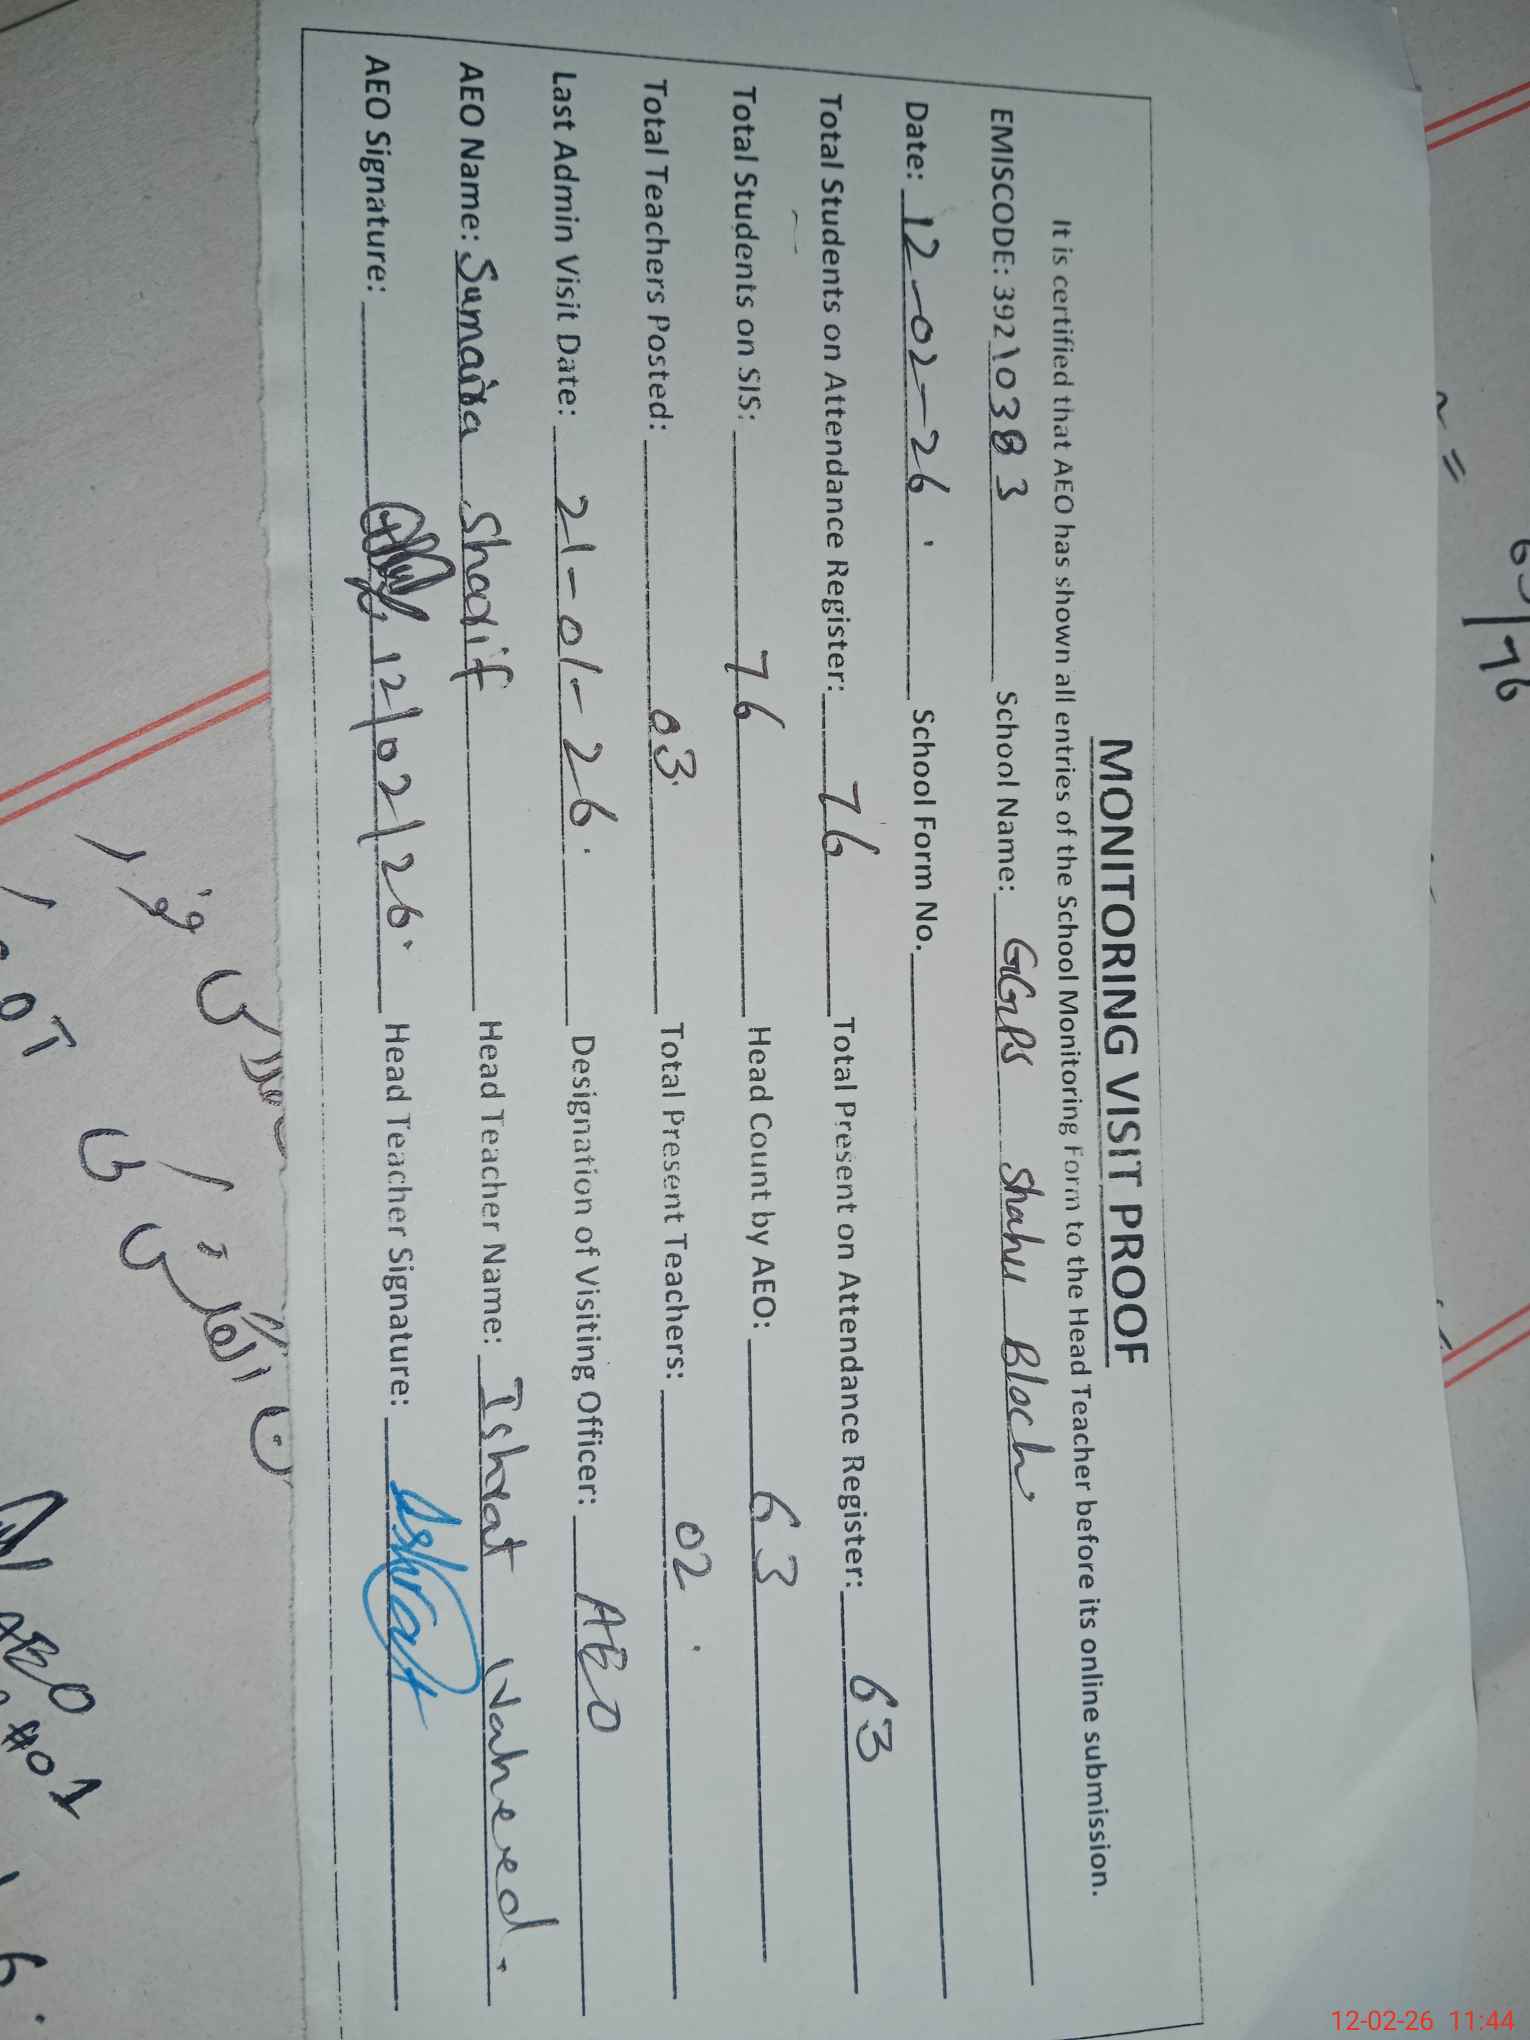 MONITORING VISIT PROOF
It is certified that AEO has shown all entries of the School Monitoring Form to the Head Teacher before its online submission.
EMISCODE: 39210383 School Name: GGPS Shahu Bloch
Date: 12-02-26 School Form No.
Total Students on Attendance Register: 76 Total Present on Attendance Register: 63
Total Students on SIS: 76 Head Count by AEO: 63
Total Teachers Posted: 03 Total Present Teachers: 02
Last Admin Visit Date: 21-01-26 Designation of Visiting Officer: AEO
AEO Name: Sumaira Sharif Head Teacher Name: Ishrat Naheed.
AEO Signature: 12/02/26 Head Teacher Signature: Ishrat
12-02-26 11:44